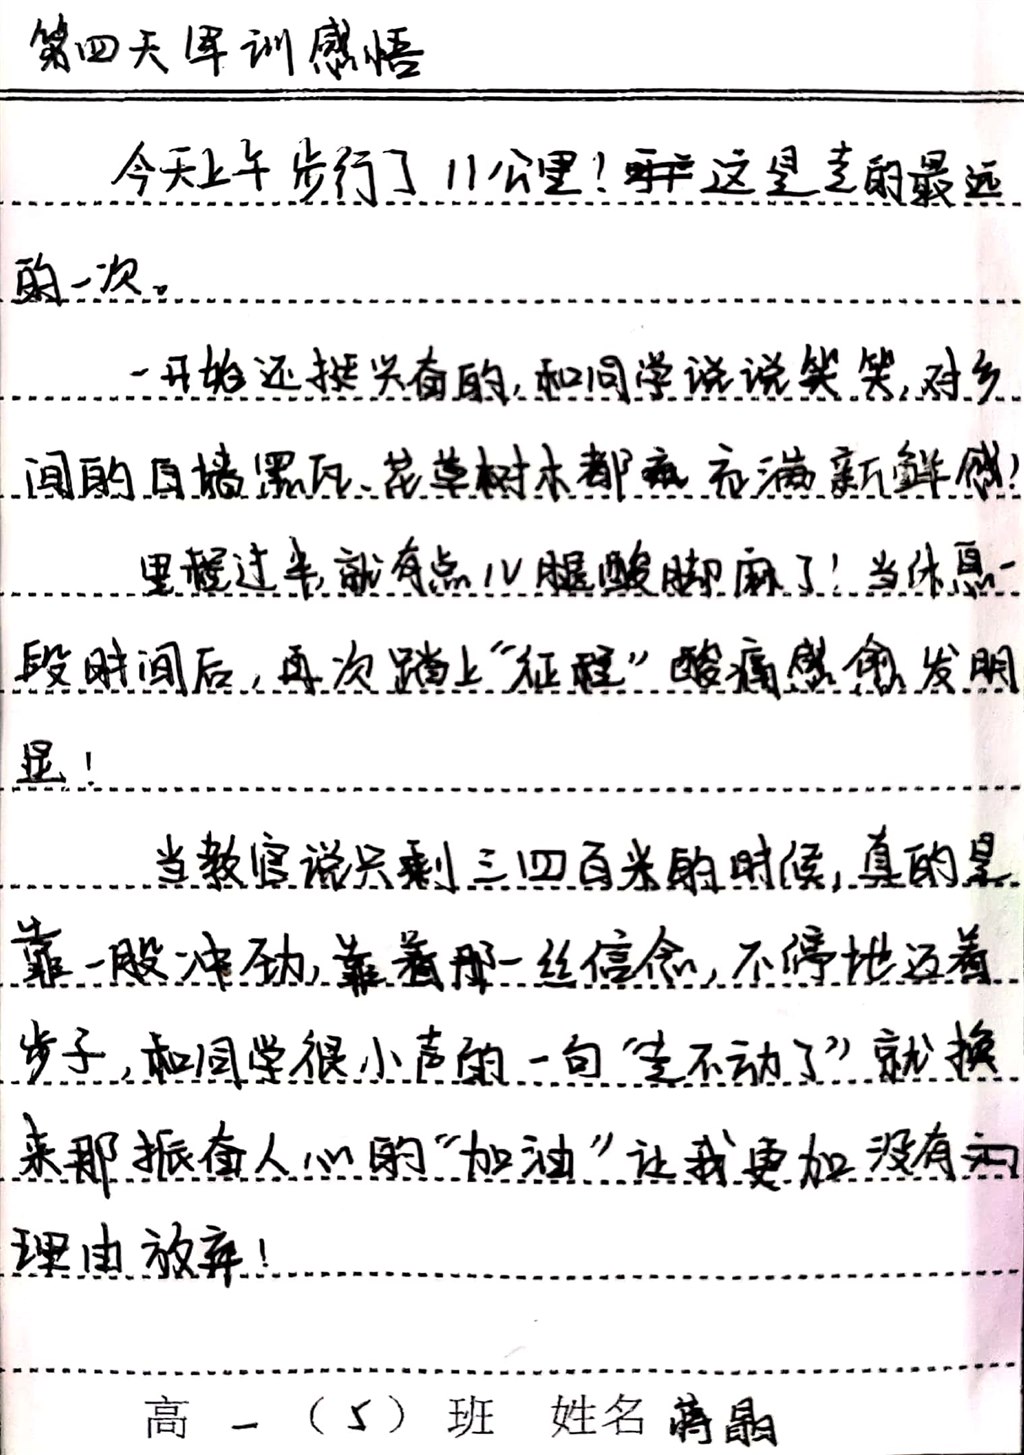 第四天军训感悟
今天上午步行了11公里!这是走的最远
的一次。
一开始还挺兴奋的,和同学说说笑笑,对乡
间的白墙黑瓦、花草树木都充满新鲜感!
里程过半,就有点儿腿酸脚麻了!当休息一
段时间后,再次踏上“征程”酸痛感愈发明
显!
当教官说只剩三四百米的时候,真的是
靠一股冲劲,靠着那一丝信念,不停地迈着
步子,和同学很小声的一句“走不动了”就换
来那振奋人心的“加油”让我更加没有
理由放弃!
高一(5)班 姓名蒋晶